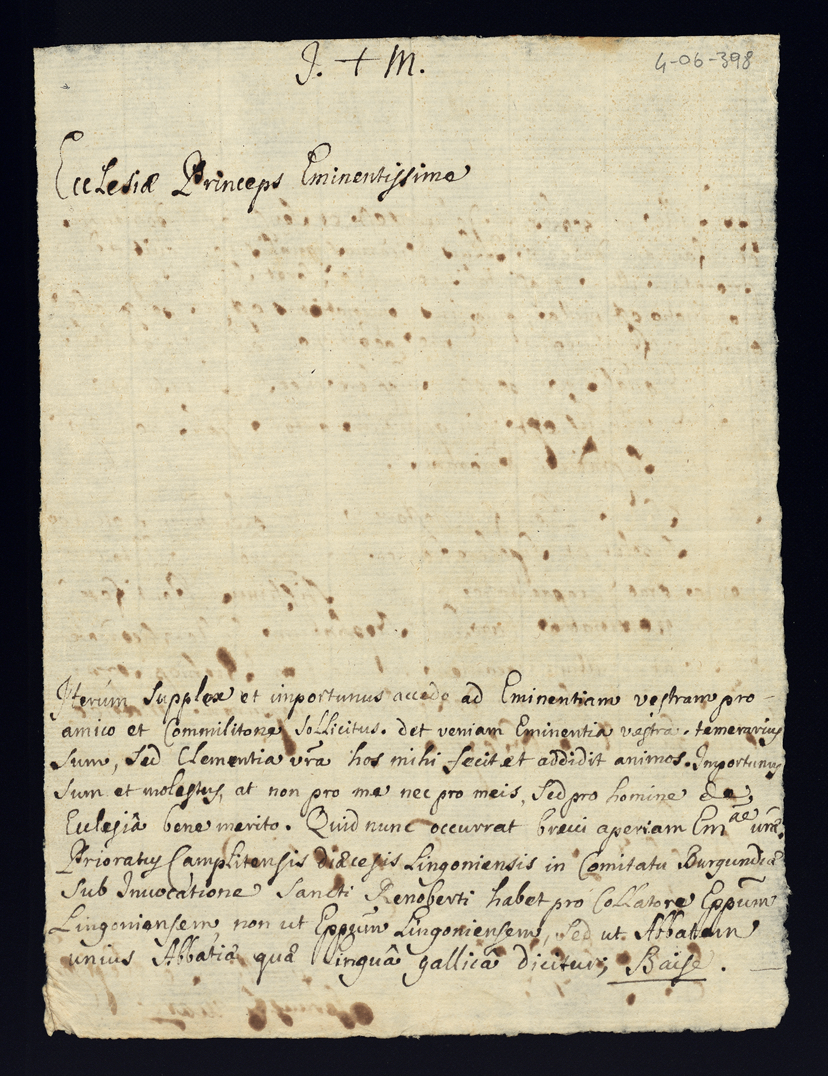 J. + M.
4-06-398
Ecclesiæ Princeps Eminentissime
Jterùm supplex et inportunus accedo ad Eminentiam vestram pro
amico et Commilitone sollicitus. det veniam Eminentia vestra. temerarius
sum, sed Clementia vrã hos mihi fecit et addidit animos. Importunus
sum et molestus, at non pro me nec pro meis, sed pro homine de
Ecclesiâ bene merito. Quid nunc occurrat brevi aperiam Emae vræ.
Prioratus Camplitensis diæcesis Lingoniensis in Comitatu Burgundiæ
sub Invocatione Sancti Renoberti habet pro Collatore Eppũm
Lingoniensem non ut Eppũm Lingoniensem, sed ut Abbatem
unius Abbatiæ quæ linguâ gallicâ dicitur, Baise.